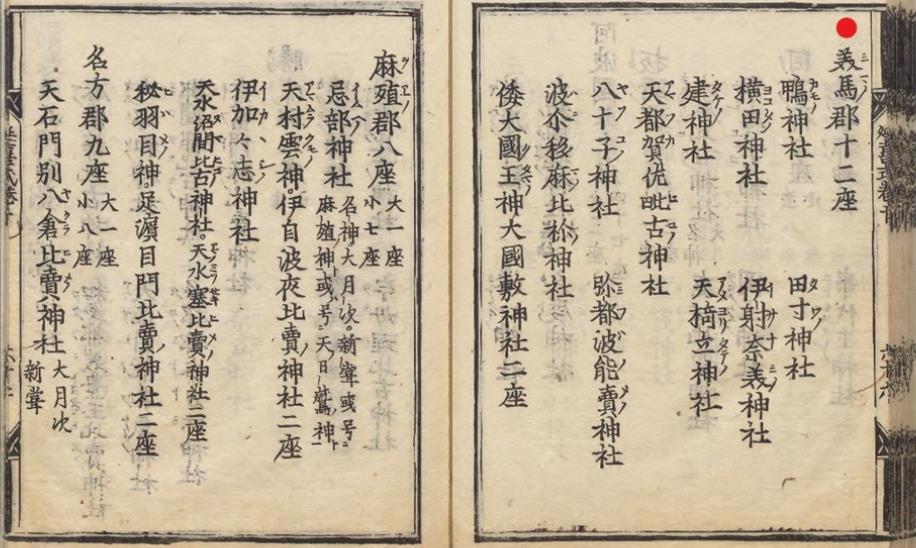 美馬郡十二座
鴨神社 田寸神社
横田神社 伊射奈美神社
建神社 天椅立神社
天都賀佐毗古神社
八十子神社 弥都波能賣神社
波尒移麻比祢神社
倭大國玉神大國敷神社二座
麻殖郡八座 大一座 小七座
忌部神社 名神大月次新嘗或号 麻殖神或号天日鷲神
天村雲神伊自波夜比賣神社二座
伊加々志神社
天水沼間比古神社天水塞比賣神社二座
秘羽目神足濱目門比賣神社二座
名方郡九座 大一座 小八座
天石門別八倉比賣神社 大月次 新嘗
延喜式巻十